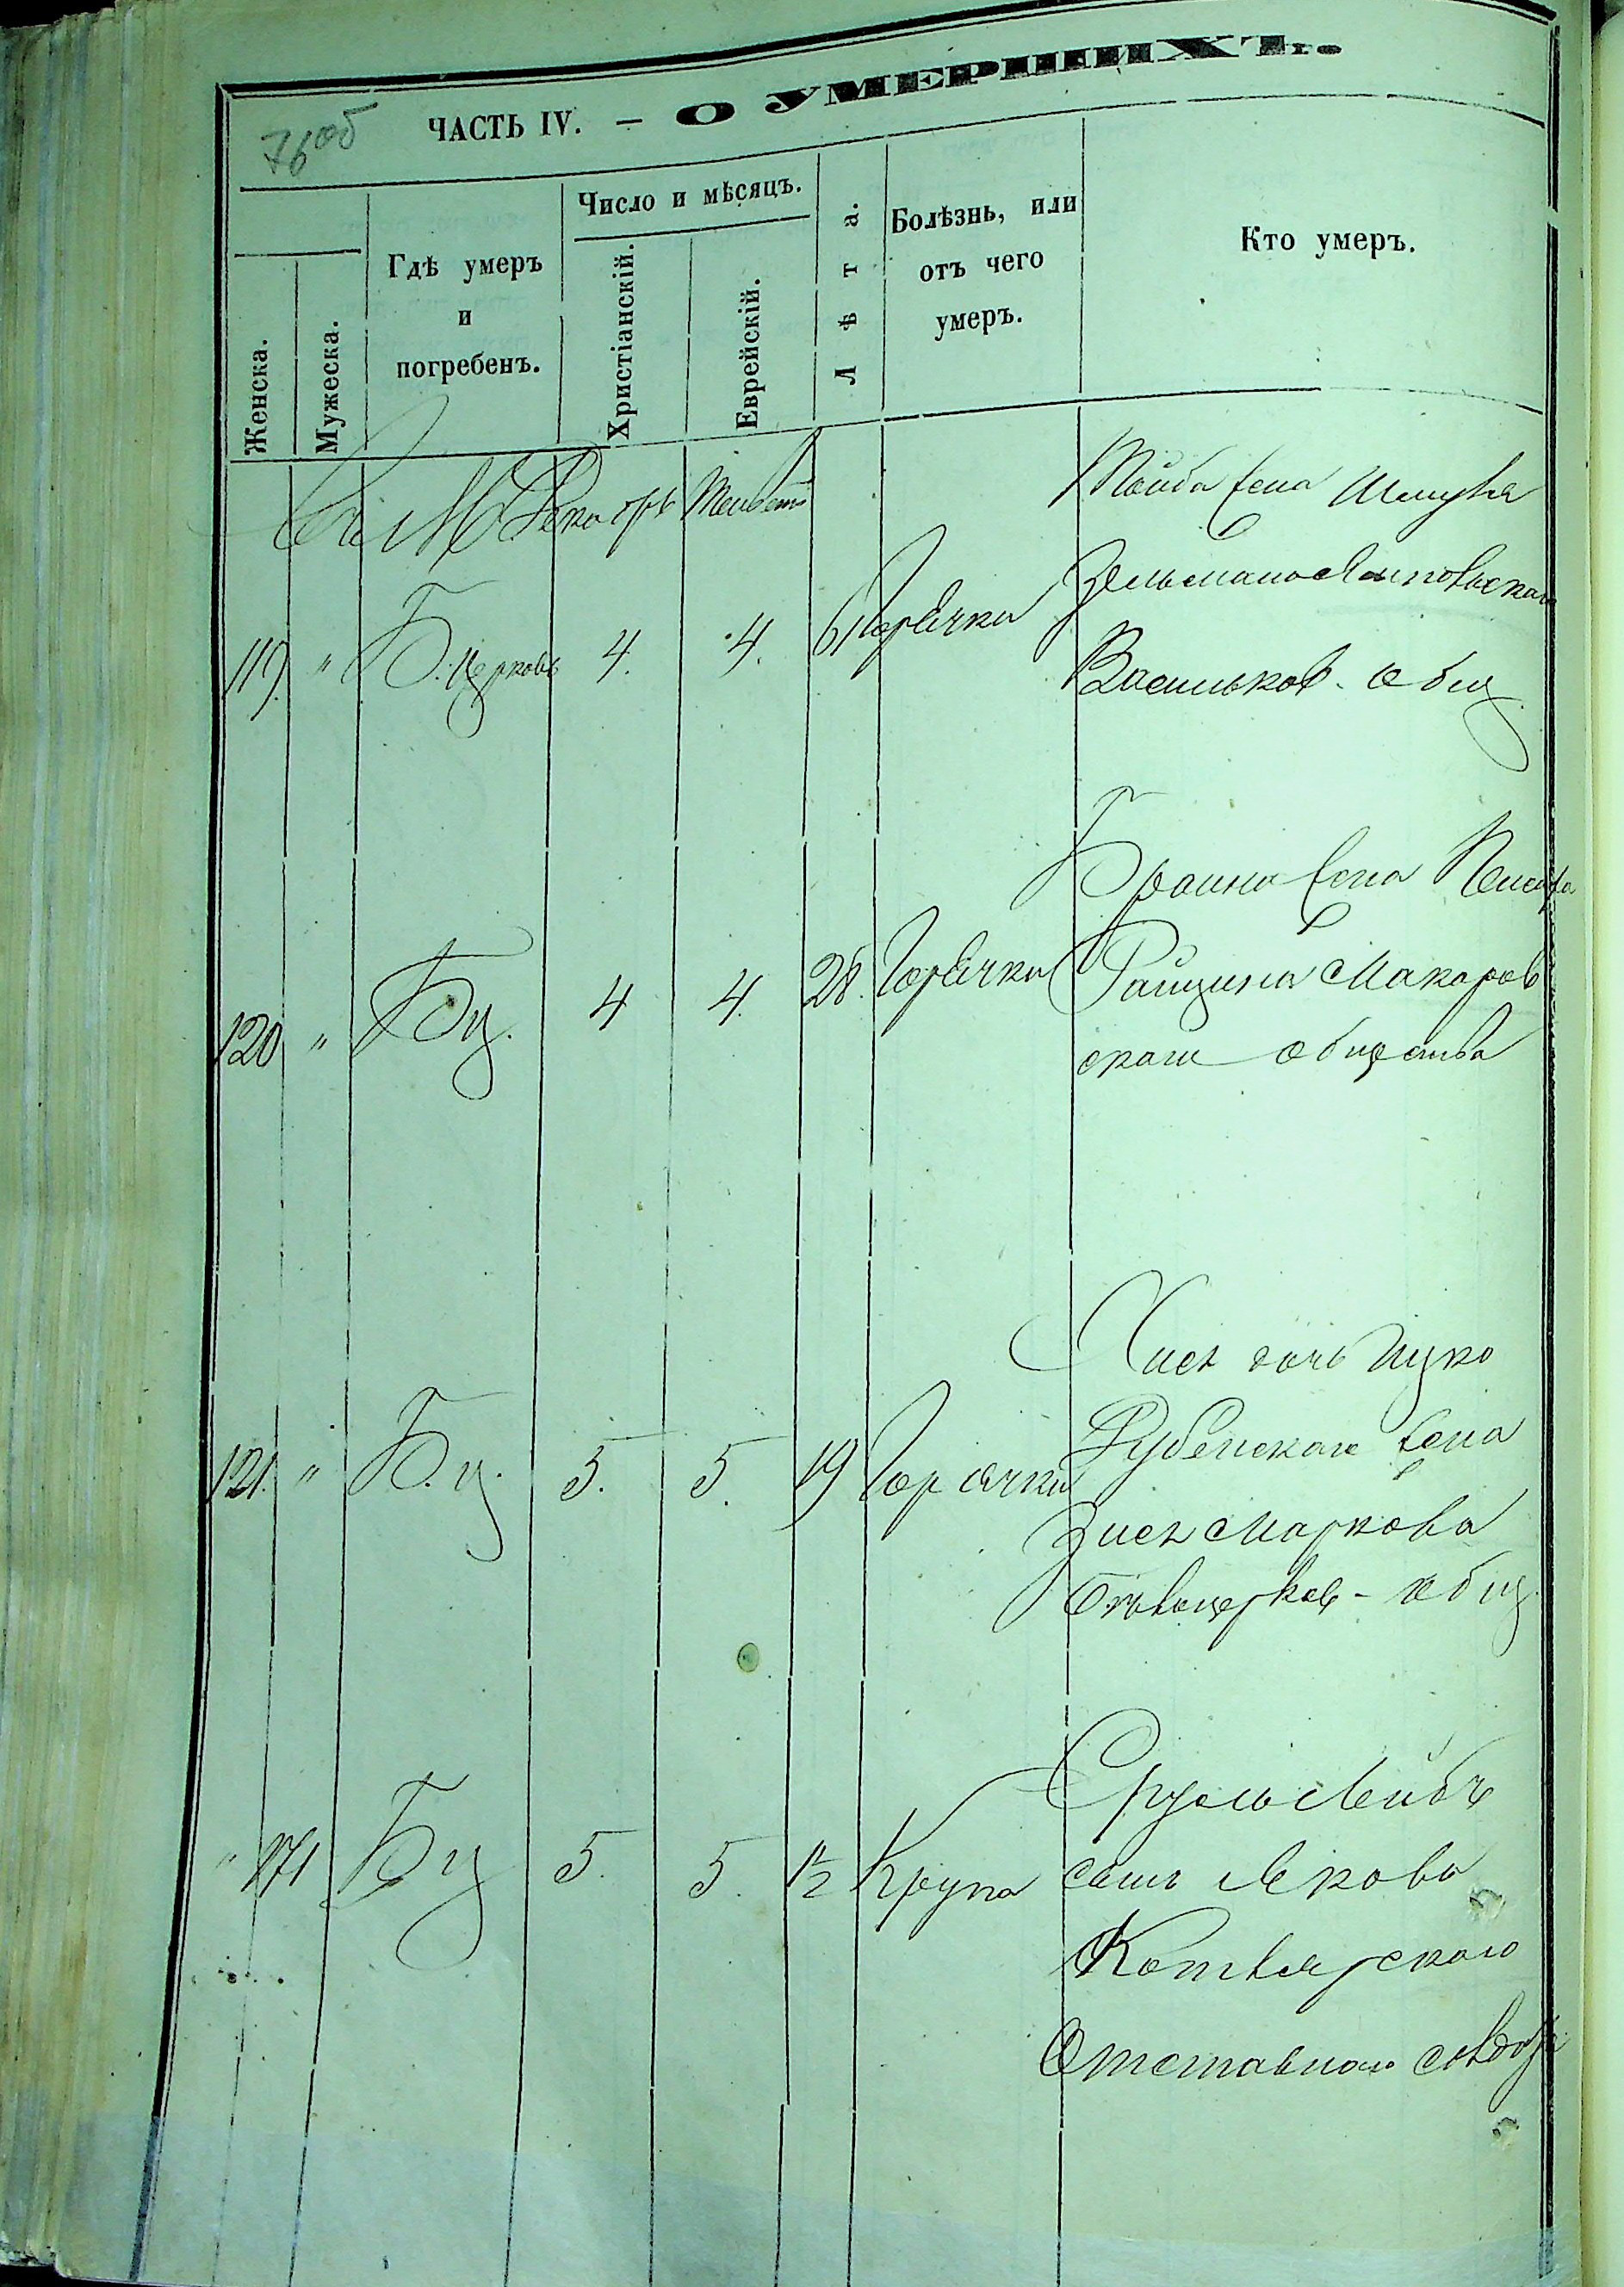 76об
ЧАСТЬ IV. — О УМЕРШИХЪ.
Женска.
Мужеска.
Гдѣ умеръ
и
погребенъ.
Число и мѣсяцъ.
Христіанскій.
Еврейскій.
Лѣта.
Болѣзнь, или
отъ чего
умеръ.
Кто умеръ.
М Декабрь Тейветъ
119. " Б. Церковь 4. 4. 61 Горячки
Тойба жена Шмуля
Зельмана
Васильков. общ.
120 " Бц. 4 4. 28. Горячки
Браина жена
Макаров
скаго общества
121. " Б. ц. 5. 5. 19 Горячки
Хися дочь Ицко
жена
Зися Маркова
Бѣлоцерков- общ.
" 171 Бц 5. 5. 1/2 Крупа
Сруль Лейбъ
сынъ Якова
Котлярскаго
Отставнаго солдата